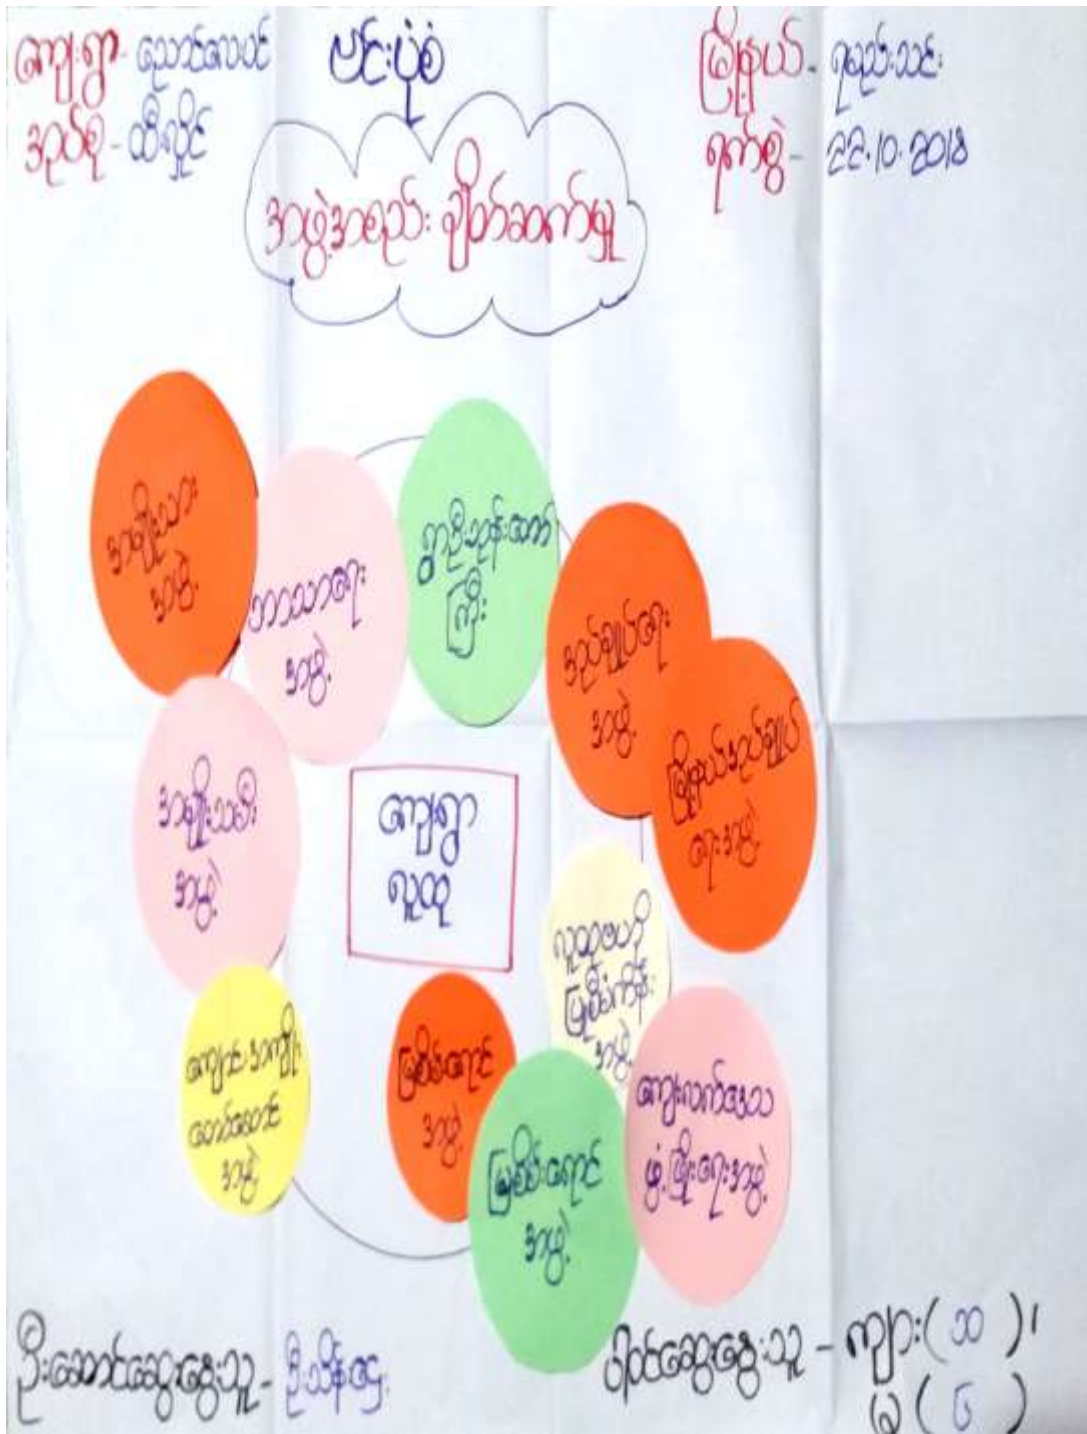 ကျေးရွာ - ညောင်လေးပင်
အုပ်စု - ထီးလှိုင်
ဗင်းပုံစံ
မြို့နယ် - ရမည်းသင်း
ရက်စွဲ - 22.10.2018
အဖွဲ့အစည်း ချိတ်ဆက်မှု
အမျိုးသား
အဖွဲ့
ဘာသာရေး
အဖွဲ့
ရွာဦးဘုန်းတော်
ကြီး
အုပ်ချုပ်ရေး
အဖွဲ့
မြို့နယ်အုပ်ချုပ်
ရေးအဖွဲ့
အမျိုးသမီး
အဖွဲ့
ကျေးရွာ
လူထု
လူထုဗဟိုပြု
စီမံကိန်း
အဖွဲ့
ကျောင်းအကျိုး
တော်ဆောင်
အဖွဲ့
မြစိမ်းရောင်
အဖွဲ့
မြစိမ်းရောင်
အဖွဲ့
ကျေးလက်ဒေသ
ဖွံ့ဖြိုးရေးအဖွဲ့
ဦးဆောင်ဆွေးနွေးသူ - ဦးသိန်းဌေး
ပါဝင်ဆွေးနွေးသူ - ကျား( ၁၁ )၊
မ ( ၆ )